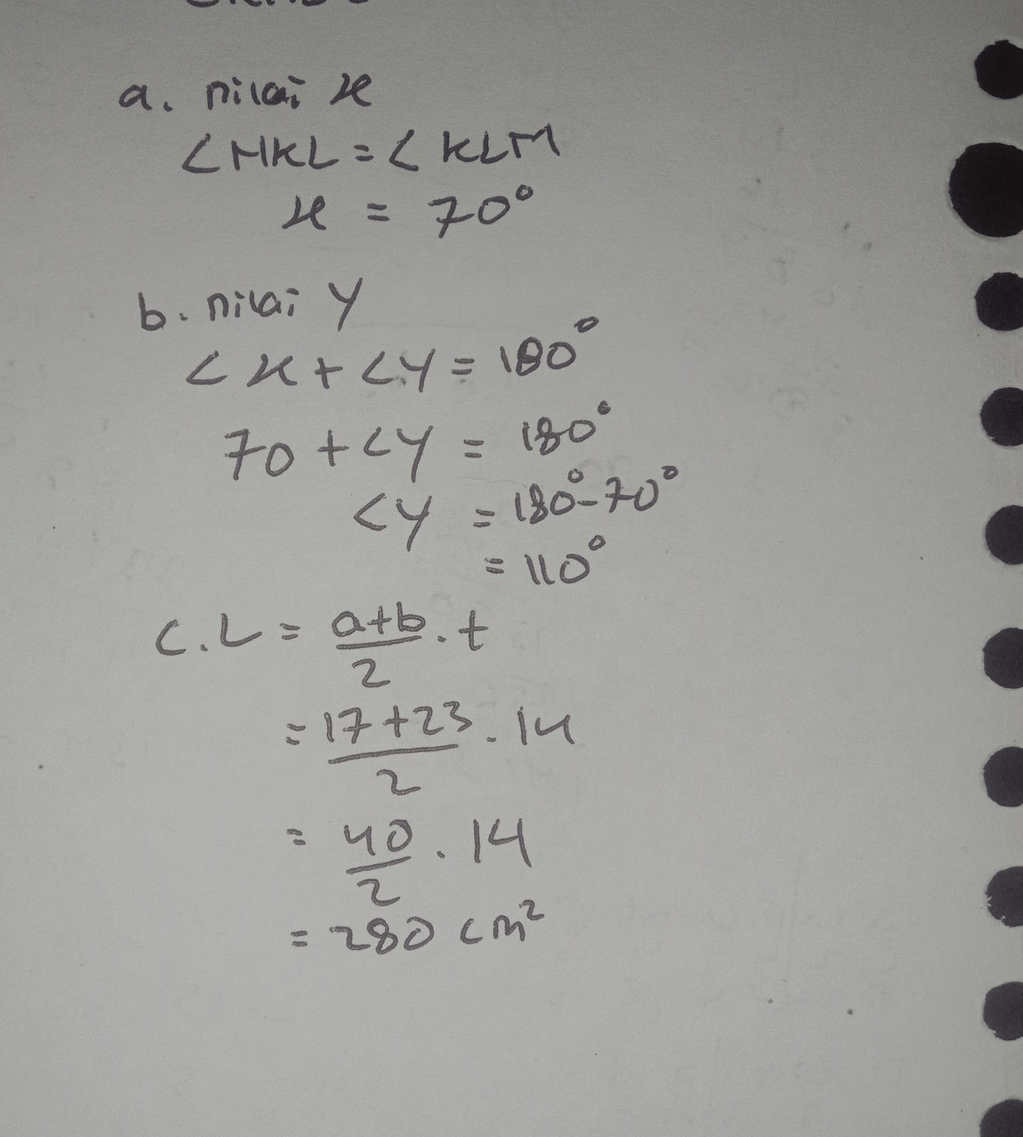 a. nilai x
∠MKL = ∠KLM
x = 70°
b. nilai y
∠x + ∠y = 180°
70 + ∠y = 180°
∠y = 180° - 70°
= 110°
C. L = a+b/2 . t
= 17+23/2 . 14
= 40/2 . 14
= 280 cm²